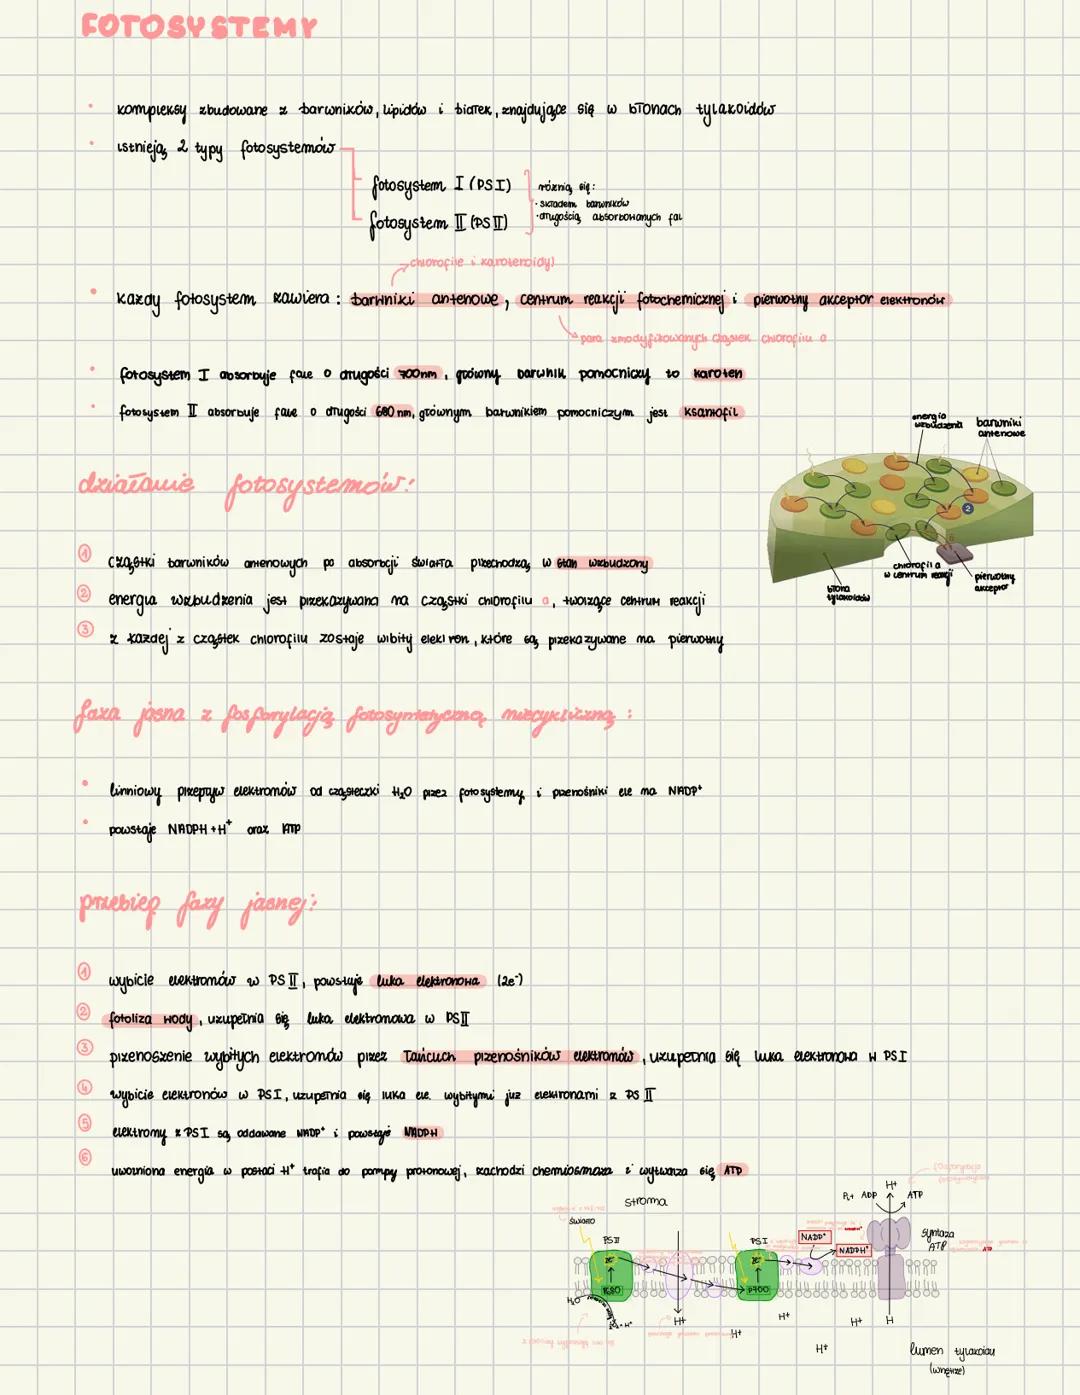 FOTOSYSTEMY
• kompleksy zbudowane z barwników, lipidów i białek, znajdujące się w błonach tylakoidów
• istnieją 2 typy fotosystemów
fotosystem I (PSI)
fotosystem II (PSII)
różnią się:
• składem barwników
• długością absorbowanych fal
chlorofile i karotenoidy!
• każdy fotosystem zawiera: barwniki antenowe, centrum reakcji fotochemicznej i pierwotny akceptor elektronów
para zmodyfikowanych cząstek chlorofilu a
• fotosystem I absorbuje fale o długości 700nm, główny barwnik pomocniczy to karoten
• fotosystem II absorbuje fale o długości 680 nm, głównym barwnikiem pomocniczym jest ksantofil
energia wzbudzenia
barwniki antenowe
2
chlorofil a w centrum reakcji
pierwotny akceptor
błona tylakoidów
działanie fotosystemów:
1 cząstki barwników antenowych po absorbcji światła przechodzą w stan wzbudzony
2 energia wzbudzenia jest przekazywana na cząstki chlorofilu a, tworzące centrum reakcji
3 z każdej z cząstek chlorofilu zostaje wibity elektron, które są przekazywane na pierwotny
faza jasna z fosforylacją fotosyntetyczną niecykliczną:
• linniowy przepływ elektronów od cząsteczki H₂O przez fotosystemy i przenośniki ele na NADP⁺
• powstaje NADPH+H⁺ oraz ATP
przebieg fazy jasnej:
1 wybicie elektronów w PSII, powstaje luka elektronowa (2e⁻)
2 fotoliza wody, uzupełnia się luka elektronowa w PSII
3 przenoszenie wybitych elektronów przez łańcuch przenośników elektronów, uzupełnia się luka elektronowa w PSI
4 wybicie elektronów w PSI, uzupełnia się luka ele. wybitymi już elektronami z PS II
5 elektrony z PSI są oddawane NADP⁺ i powstaje NADPH
6 uwolniona energia w postaci H⁺ trafia do pompy protonowej, zachodzi chemiosmoza i wytwarza się ATP
stroma
światło
PSII
2e⁻
P680
H₂O
H+
PSI
2e⁻
P700
NADP⁺
NADPH⁺
Pᵢ+ ADP
H+
ATP
syntaza ATP
H+
H+
H+
H
H+
lumen tylakoidu
(wnętrze)